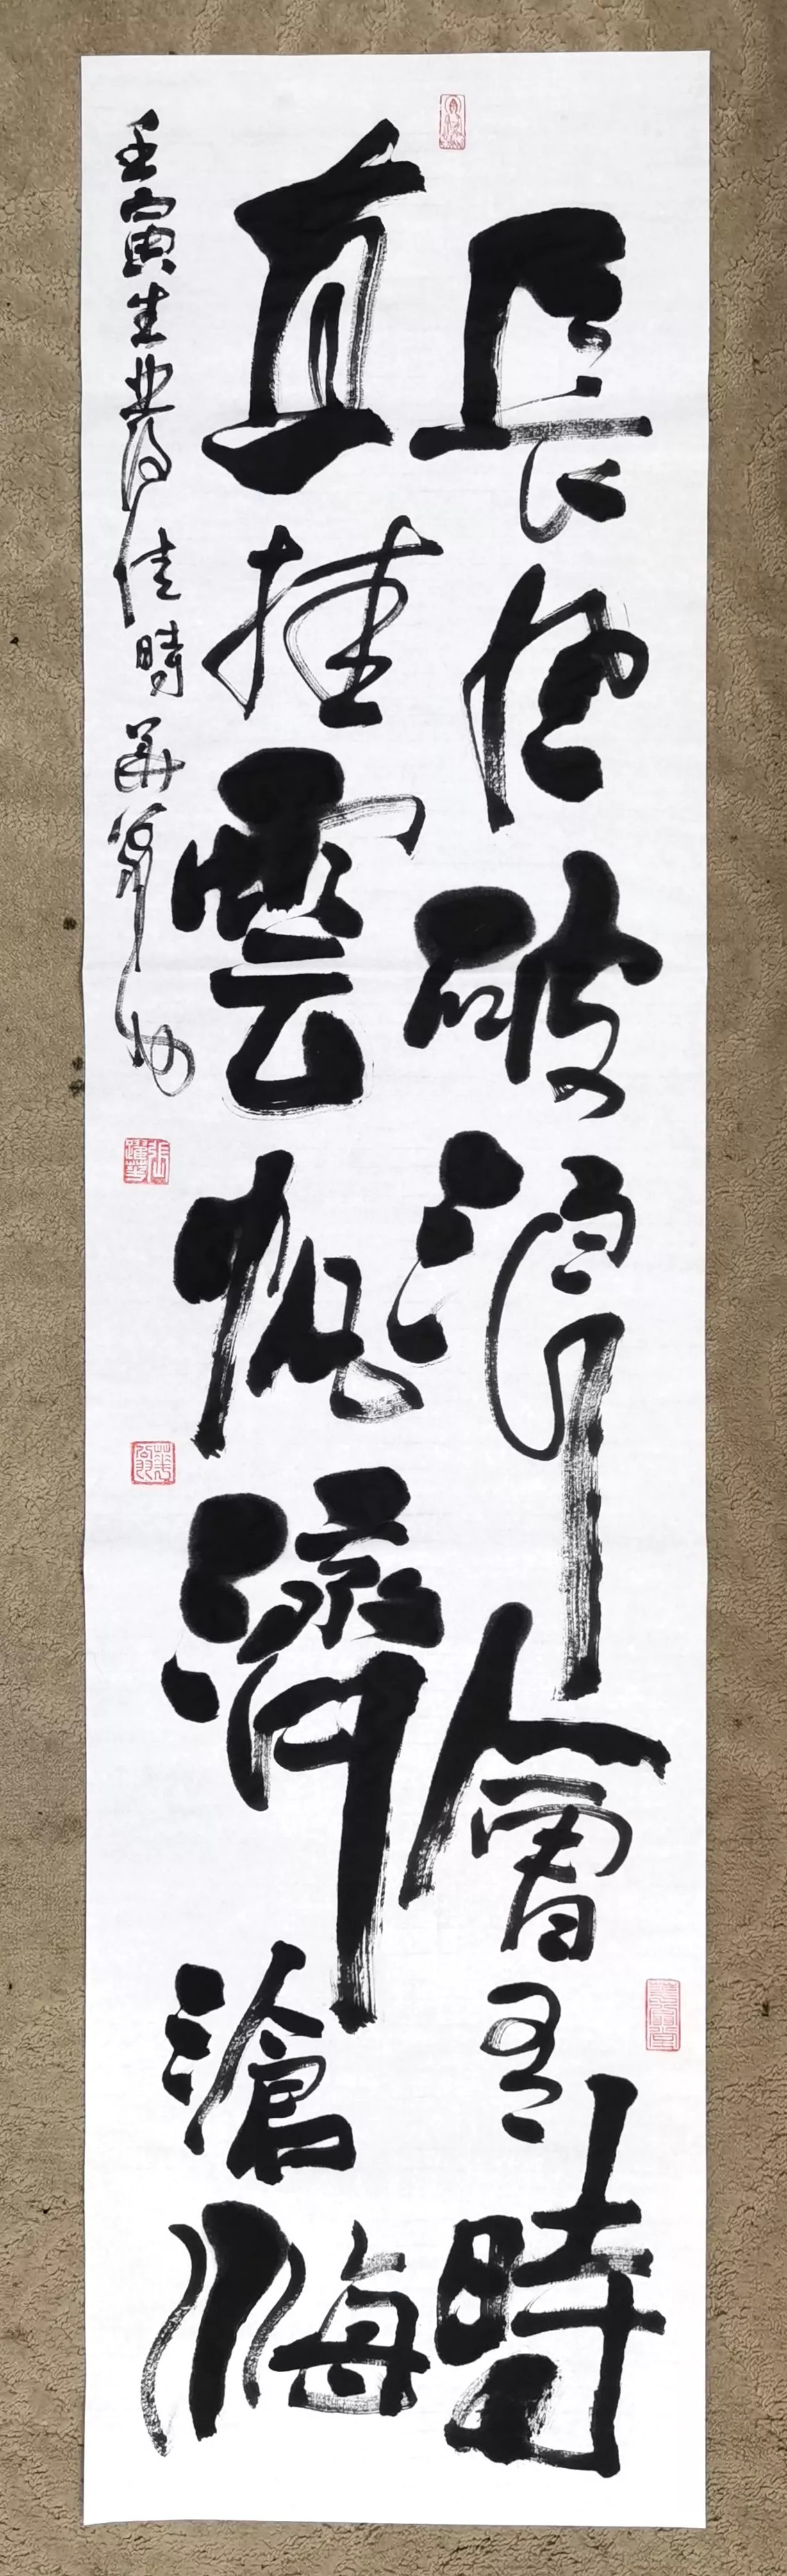 長風破浪會有時
直挂雲帆濟滄海
壬寅生 佳時